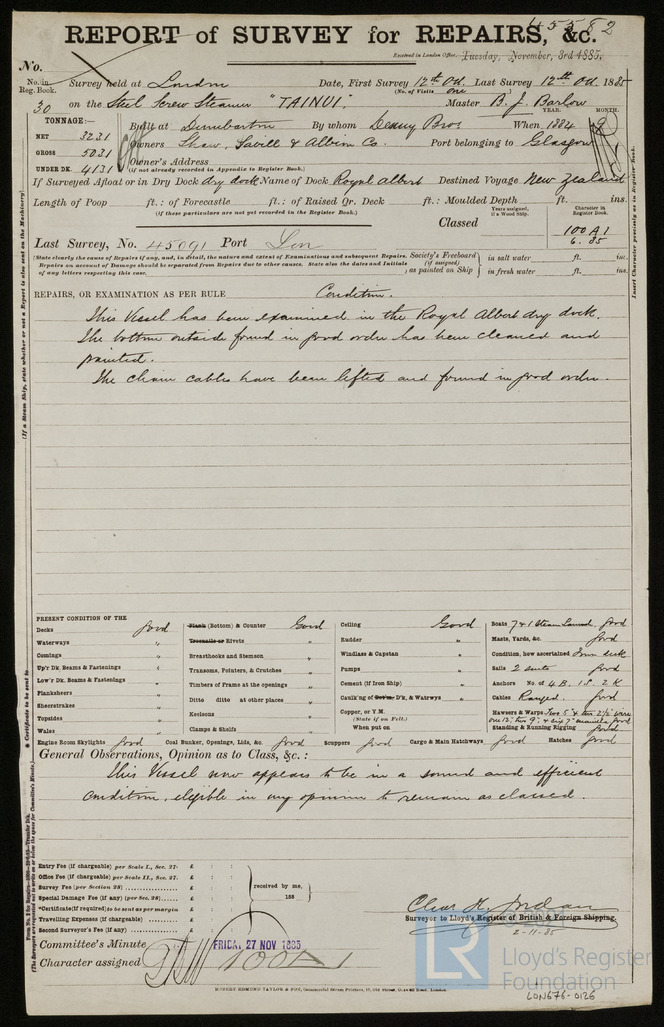 45582
REPORT of SURVEY for REPAIRS, &c.
Received in London Office, Tuesday, November, 3rd 1885.
No.
No. in Reg. Book. Survey held at London Date, First Survey 12th Oct. Last Survey 12th Oct. 1885
(No. of Visits one)
30 on the Steel Screw Steamer "TAINUI". Master B. J. Barlow
TONNAGE:— YEAR. MONTH.
Built at Dumbarton By whom Denny Bros When 1884
NET 3231
Owners Shaw, Savill & Albion Co. Port belonging to Glasgow
GROSS 5031
Owner's Address
UNDER DK. 4131 (if not already recorded in Appendix to Register Book.)
If Surveyed Afloat or in Dry Dock dry dock Name of Dock Royal Albert Destined Voyage New Zealand
Length of Poop ft.: of Forecastle ft.: of Raised Qr. Deck ft.: Moulded Depth ft. ins.
(if these particulars are not yet recorded in the Register Book.) Years assigned, if a Wood Ship. Character in Register Book.
Classed 100 A1
6. 85
Last Survey, No. 45091 Port Lon
(State clearly the cause of Repairs if any, and, in detail, the nature and extent of Examinations and subsequent Repairs. Society's Freeboard in salt water ft. ins.
Repairs on account of Damage should be separated from Repairs due to other causes. State also the dates and Initials (if assigned)
of any letters respecting this case. as painted on Ship in fresh water ft. ins.
REPAIRS, OR EXAMINATION AS PER RULE Condition.
This Vessel has been examined in the Royal Albert dry dock.
The bottom outside found in good order has been cleaned and
painted.
The chain cables have been lifted and found in good order.
PRESENT CONDITION OF THE
Decks good
Waterways "
Comings "
Up'r Dk. Beams & Fastenings "
Low'r Dk. Beams & Fastenings "
Planksheers "
Sheerstrakes "
Topsides "
Wales "
Plank (Bottom) & Counter Good
Treenails or Rivets "
Breasthooks and Stemson "
Transoms, Pointers, & Crutches "
Timbers of Frame at the openings "
Ditto ditto at other places "
Keelsons "
Clamps & Shelfs "
Ceiling Good
Rudder "
Windlass & Capstan "
Pumps "
Cement (If Iron Ship) "
Caulking of Bot'm D'k, & Watrwys "
Copper, or Y.M.
(State if on Felt.)
When put on
Boats 7 & 1 Steam Launch good
Masts, Yards, &c. good
Condition, how ascertained From deck
Sails 2 suits good
Anchors No. of 4 B. 1 S. 2 K
Cables Ranged. good
Hawsers & Warps Two 5" & two 2 1/2" wire
one 12", two 9" & six 7" manila good
Standing & Running Rigging good
Engine Room Skylights good Coal Bunker, Openings, Lids, &c. good Scuppers good Cargo & Main Hatchways good Hatches good
General Observations, Opinion as to Class, &c. :
This Vessel now appears to be in a sound and efficient
condition, eligible in my opinion to remain as classed.
Entry Fee (if chargeable) per Scale I., Sec. 27. £ : :
Office Fee (if chargeable) per Scale II., Sec. 27. £ : :
Survey Fee (per Section 28) £ : : received by me,
Special Damage Fee (if any) (per Sec. 28) £ : : 188
*Certificate (if required) to be sent as per margin £ : :
Travelling Expenses (if chargeable) £ : :
Second Surveyor's Fee (if any) £ : :
Chas. H. Jordan
Surveyor to Lloyd's Register of British & Foreign Shipping.
2-11-85
Committee's Minute FRIDAY 27 NOV 1885
Character assigned 100 A 1
LR Lloyd's Register
Foundation
LON676-0126
(If a Steam Ship, state whether or not a Report is also sent on the Machinery.)
Insert Character precisely as in Register Book.